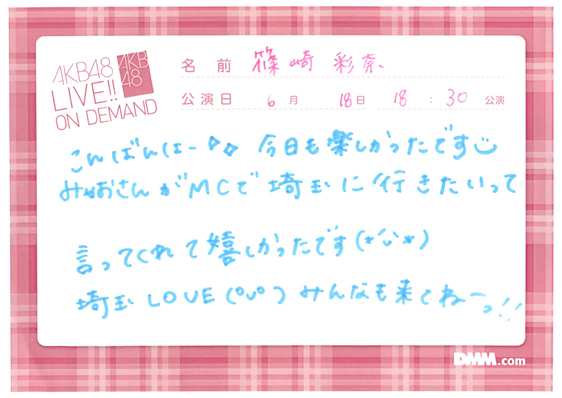 AKB48
LIVE!!
ON DEMAND
AKB
48
名 前 篠崎 彩奈
公演日 6月 18日 18:30 公演
こんばんはー 今日も楽しかったです
みゃおさんがMCで埼玉に行きたいって
言ってくれて嬉しかったです(*'ν'*)
埼玉LOVE(°ν°)みんなも来てねーっ!!
DMM.com